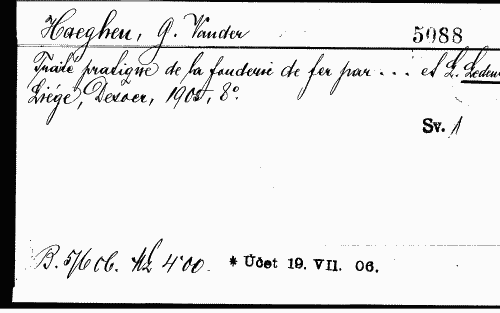 Haeghen, G. Vander 5088
Traité pratique de la fonderie de fer par ... et L.
Liége, Desoer, 1905, 8°.
Sv. 1
B. 5/6 06. Kč 4·00. * Účet 19. VII. 06.